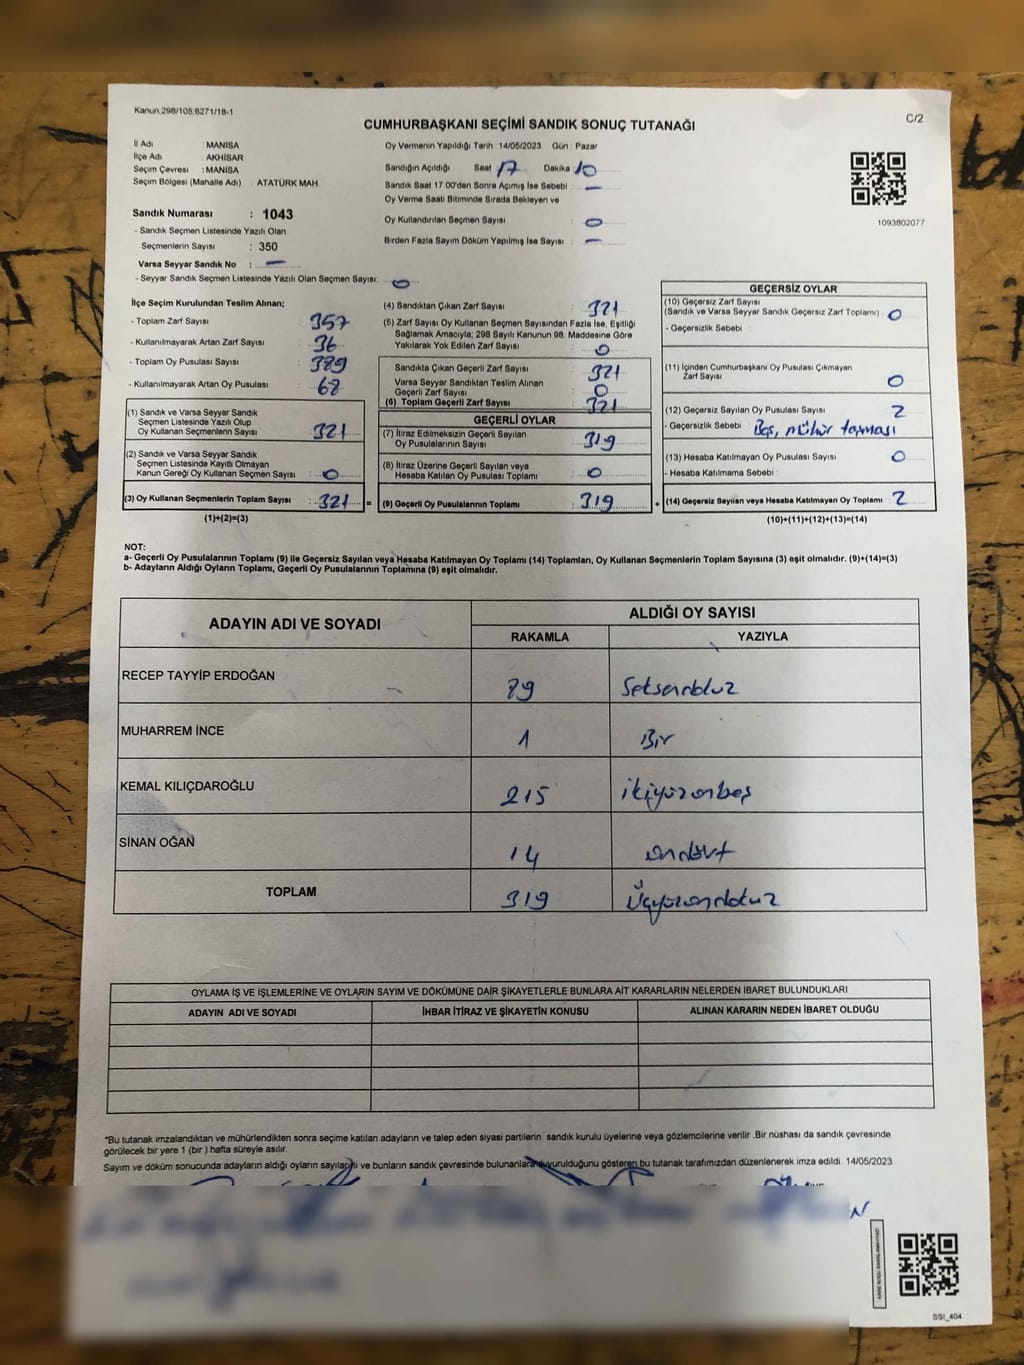 Kanun.298/105,6271/18-1
C/2
CUMHURBAŞKANI SEÇİMİ SANDIK SONUÇ TUTANAĞI
İl Adı : MANİSA
İlçe Adı AKHİSAR
Seçim Çevresi : MANİSA
Seçim Bölgesi (Mahalle Adı) : ATATÜRK MAH.
Sandık Numarası : 1043
- Sandık Seçmen Listesinde Yazılı Olan
Seçmenlerin Sayısı : 350
Varsa Seyyar Sandık No : —
- Seyyar Sandık Seçmen Listesinde Yazılı Olan Seçmen Sayısı: 0
Oy Vermenin Yapıldığı Tarih :14/05/2023 Gün : Pazar
Sandığın Açıldığı Saat 17 Dakika 10
Sandık Saat 17.00'den Sonra Açılmış İse Sebebi : —
Oy Verme Saati Bitiminde Sırada Bekleyen ve
Oy Kullandırılan Seçmen Sayısı : 0
Birden Fazla Sayım Döküm Yapılmış İse Sayısı : —
1093802077
İlçe Seçim Kurulundan Teslim Alınan;
- Toplam Zarf Sayısı : 357
- Kullanılmayarak Artan Zarf Sayısı : 36
- Toplam Oy Pusulası Sayısı : 389
- Kullanılmayarak Artan Oy Pusulası : 68
(1) Sandık ve Varsa Seyyar Sandık
Seçmen Listesinde Yazılı Olup
Oy Kullanan Seçmenlerin Sayısı : 321
(2) Sandık ve Varsa Seyyar Sandık
Seçmen Listesinde Kayıtlı Olmayan
Kanun Gereği Oy Kullanan Seçmen Sayısı : 0
(3) Oy Kullanan Seçmenlerin Toplam Sayısı : 321 =
(1)+(2)=(3)
(4) Sandıktan Çıkan Zarf Sayısı : 321
(5) Zarf Sayısı Oy Kullanan Seçmen Sayısından Fazla İse, Eşitliği
Sağlamak Amacıyla; 298 Sayılı Kanunun 98. Maddesine Göre
Yakılarak Yok Edilen Zarf Sayısı : 0
Sandıkta Çıkan Geçerli Zarf Sayısı : 321
Varsa Seyyar Sandıktan Teslim Alınan
Geçerli Zarf Sayısı : 0
(6) Toplam Geçerli Zarf Sayısı : 321
GEÇERLİ OYLAR
(7) İtiraz Edilmeksizin Geçerli Sayılan
Oy Pusulasının Sayısı : 319
(8) İtiraz Üzerine Geçerli Sayılan veya
Hesaba Katılan Oy Pusulası Toplamı : 0
(9) Geçerli Oy Pusulalarının Toplamı : 319 +
GEÇERSİZ OYLAR
(10) Geçersiz Zarf Sayısı
(Sandık ve Varsa Seyyar Sandık Geçersiz Zarf Toplamı) : 0
- Geçersizlik Sebebi :
(11) İçinden Cumhurbaşkanı Oy Pusulası Çıkmayan
Zarf Sayısı : 0
(12) Geçersiz Sayılan Oy Pusulası Sayısı : 2
- Geçersizlik Sebebi : Boş, mühür taşması
(13) Hesaba Katılmayan Oy Pusulası Sayısı : 0
- Hesaba Katılmama Sebebi :
(14) Geçersiz Sayılan veya Hesaba Katılmayan Oy Toplamı : 2
(10)+(11)+(12)+(13)=(14)
NOT:
a- Geçerli Oy Pusulalarının Toplamı (9) ile Geçersiz Sayılan veya Hesaba Katılmayan Oy Toplamı (14) Toplamları, Oy Kullanan Seçmenlerin Toplam Sayısına (3) eşit olmalıdır. (9)+(14)=(3)
b- Adayların Aldığı Oyların Toplamı, Geçerli Oy Pusulalarının Toplamına (9) eşit olmalıdır.
ADAYIN ADI VE SOYADI ALDIĞI OY SAYISI
RAKAMLA YAZIYLA
RECEP TAYYİP ERDOĞAN 89 Seksendokuz
MUHARREM İNCE 1 Bir
KEMAL KILIÇDAROĞLU 215 ikiyüzonbeş
SİNAN OĞAN 14 ondört
TOPLAM 319 Üçyüzondokuz
OYLAMA İŞ VE İŞLEMLERİNE VE OYLARIN SAYIM VE DÖKÜMÜNE DAİR ŞİKAYETLERLE BUNLARA AİT KARARLARIN NELERDEN İBARET BULUNDUKLARI
ADAYIN ADI VE SOYADI İHBAR İTİRAZ VE ŞİKAYETİN KONUSU ALINAN KARARIN NEDEN İBARET OLDUĞU
*Bu tutanak imzalandıktan ve mühürlendikten sonra seçime katılan adayların ve talep eden siyasi partilerin sandık kurulu üyelerine veya gözlemcilerine verilir .Bir nüshası da sandık çevresinde
görülecek bir yere 1 (bir ) hafta süreyle asılır.
Sayım ve döküm sonucunda adayların aldığı oyların sayılarını ve bunların sandık çevresinde bulunanlara duyurulduğunu gösteren bu tutanak tarafımızdan düzenlenerek imza edildi. 14/05/2023
SSI_404